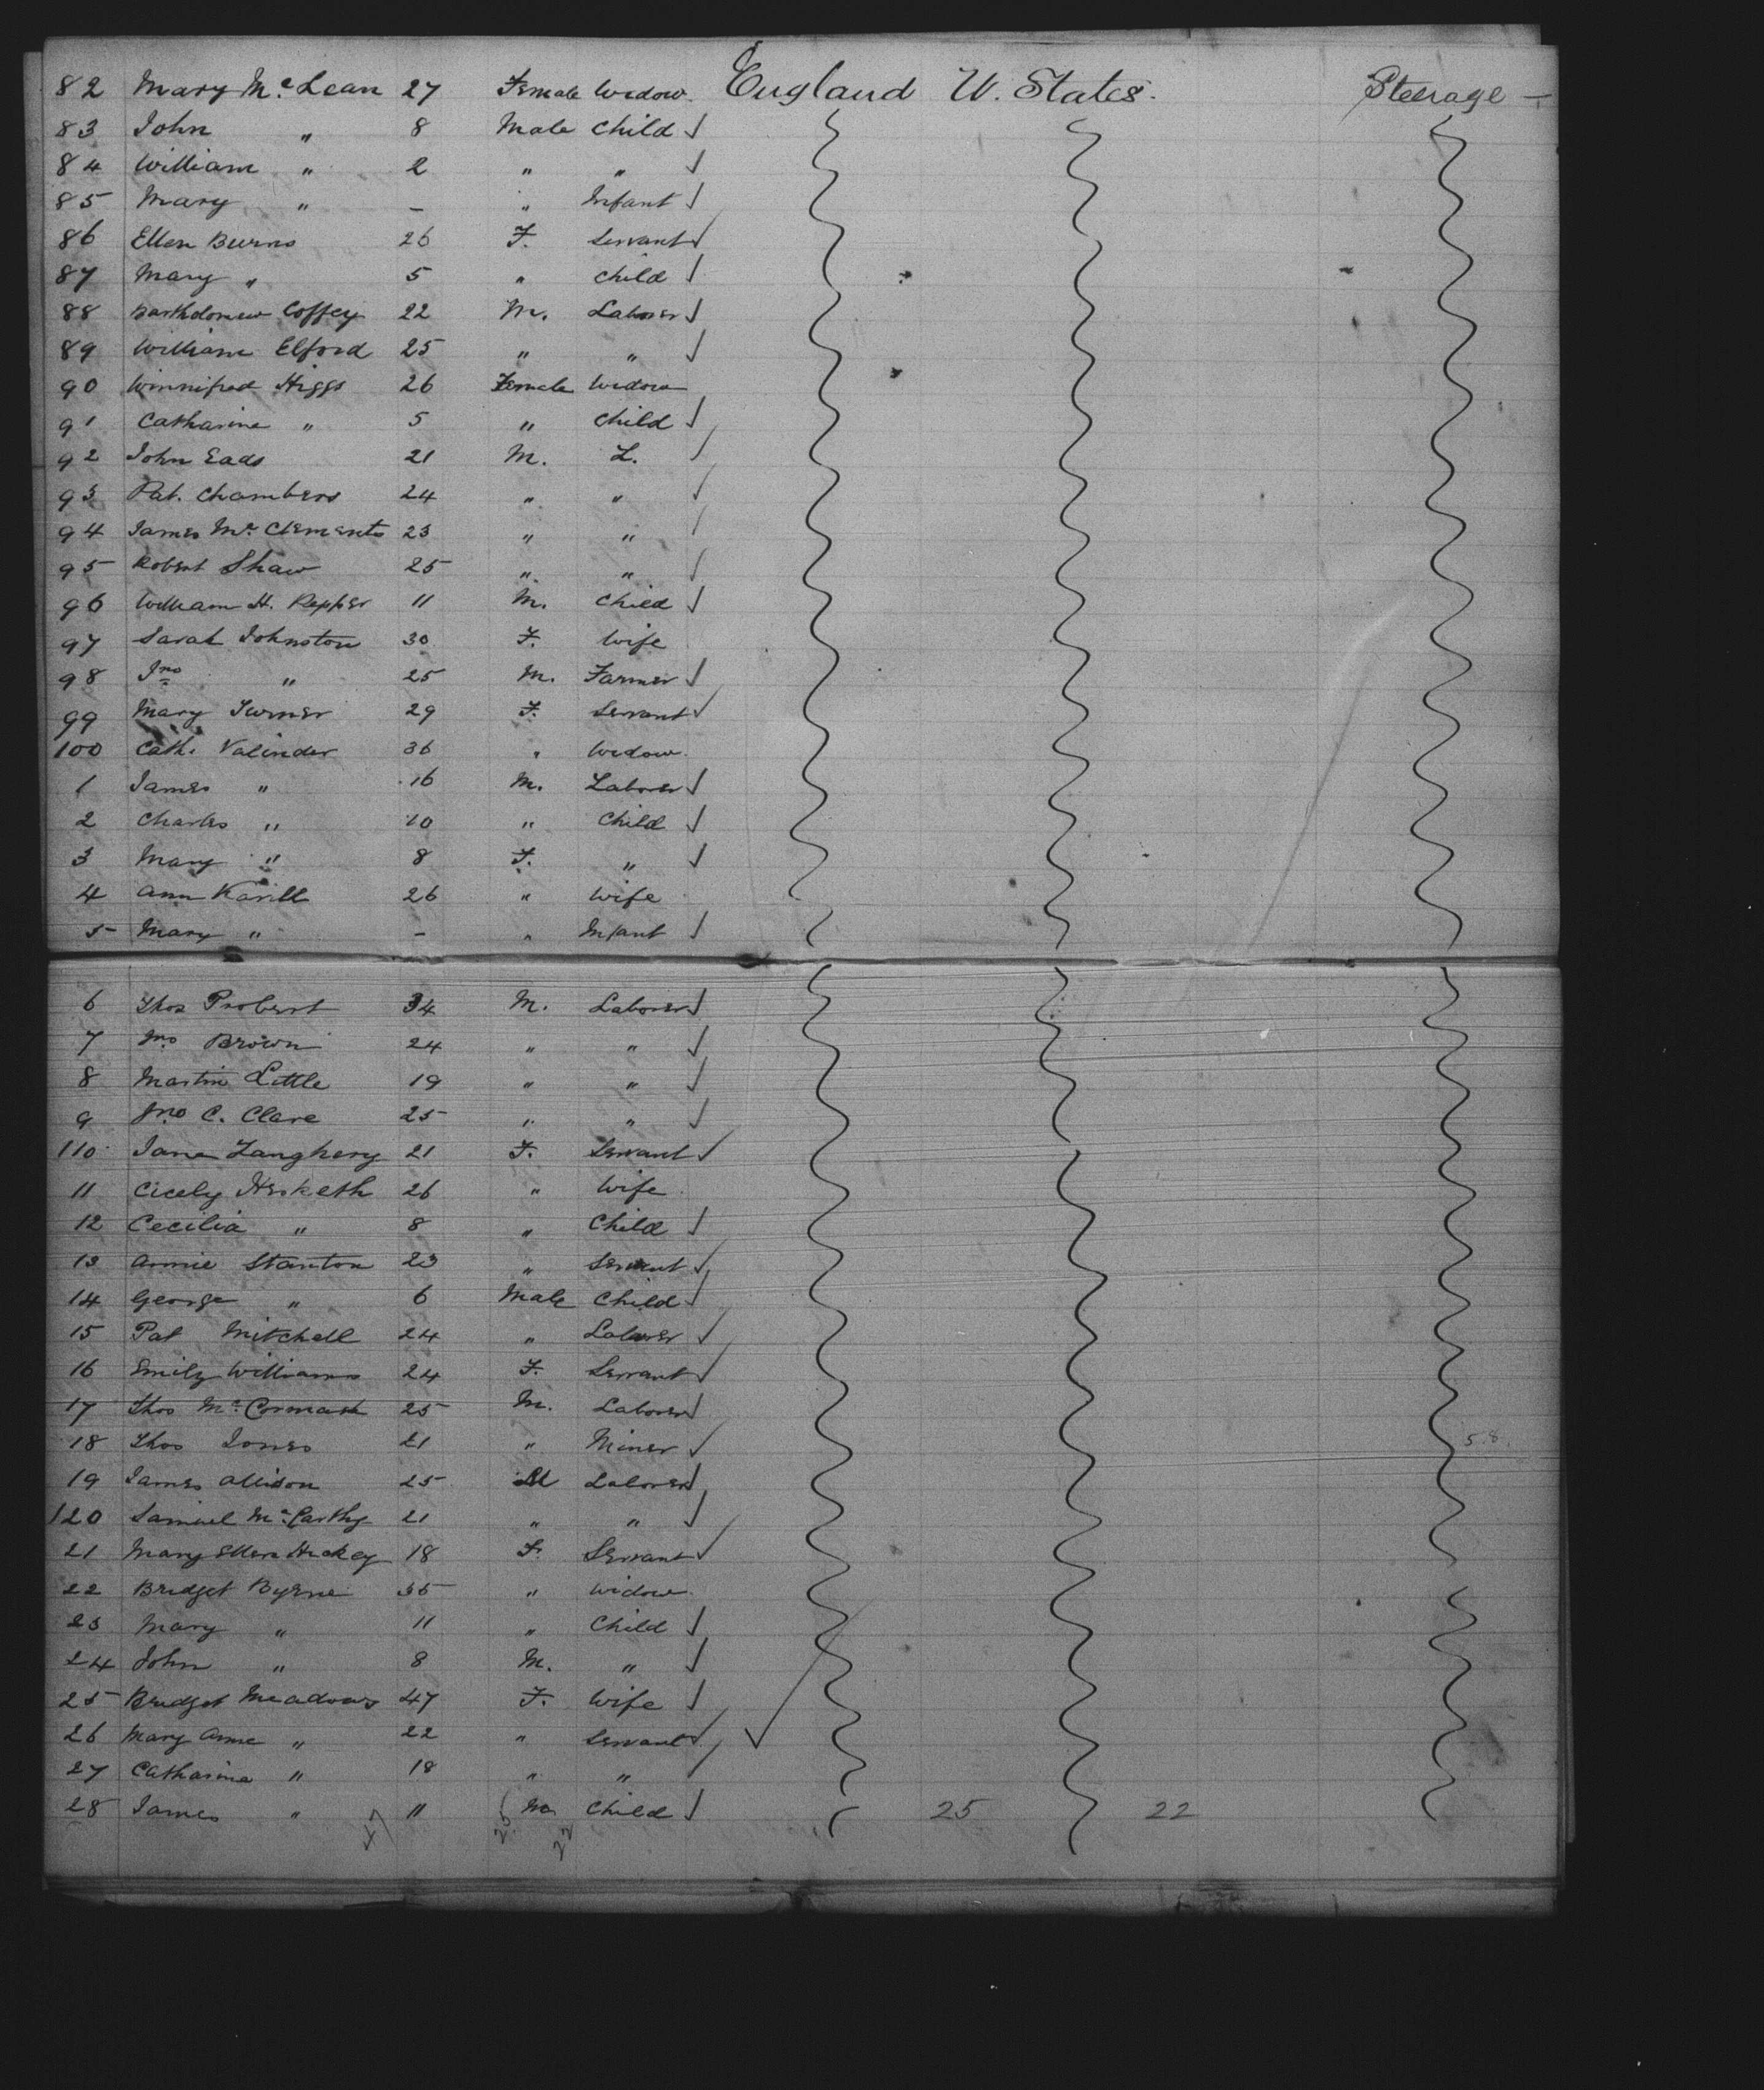 82 Mary Mc Lean 27 Female Widow. England U. States. Steerage -
83 John " 8 Male Child ✓
84 William " 2 " " ✓
85 Mary " - " Infant ✓
86 Ellen Burns 26 F. Servant ✓
87 Mary " 5 " Child ✓
88 Bartholomew Coffey 22 M. Laborer ✓
89 William Elford 25 " " ✓
90 Winnifred Higgs 26 Female Widow
91 Catharine " 5 " Child ✓
92 John Eads 21 M. L. ✓
93 Pat. Chambers 24 " " ✓
94 James Mc Clements 23 " " ✓
95 Robert Shaw 25 " " ✓
96 William H. Pepper 11 M. Child ✓
97 Sarah Johnston 30 F. Wife
98 Jno " 25 M. Farmer ✓
99 Mary Turner 29 F. Servant ✓
100 Cath. Valinder 36 " Widow.
1 James " 16 M. Laborer ✓
2 Charles " 10 " Child ✓
3 Mary " 8 F. " ✓
4 Ann Kavill 26 " Wife
5 Mary " - " Infant ✓
6 Thos Probert 34 M. Laborer ✓
7 Jno Brown 24 " " ✓
8 Martin Little 19 " " ✓
9 Jno C. Clare 25 " " ✓
110 Jane Langhery 21 F. Servant ✓
11 Cicely Hesketh 26 " Wife
12 Cecilia " 8 " Child ✓
13 Annie Stanton 23 " Servant ✓
14 George " 6 Male Child ✓
15 Pat Mitchell 24 " Laborer ✓
16 Emily Williams 24 F. Servant ✓
17 Thos Mc Cormack 25 M. Laborer ✓
18 Thos Jones 21 " Miner ✓ 5.8.
19 James Allison 25 M Laborer ✓
120 Samuel Mc Carthy 21 " " ✓
21 Mary Ellen Hickey 18 F. Servant ✓
22 Bridget Byrne 35 " Widow.
23 Mary " 11 " Child ✓
24 John " 8 M. " ✓
25 Bridget Meadows 47 F. Wife ✓
26 Mary Anne " 22 " Servant ✓ ✓
27 Catharina " 18 " " ✓
28 James " 11 M. Child ✓ 25 22
47 25 22